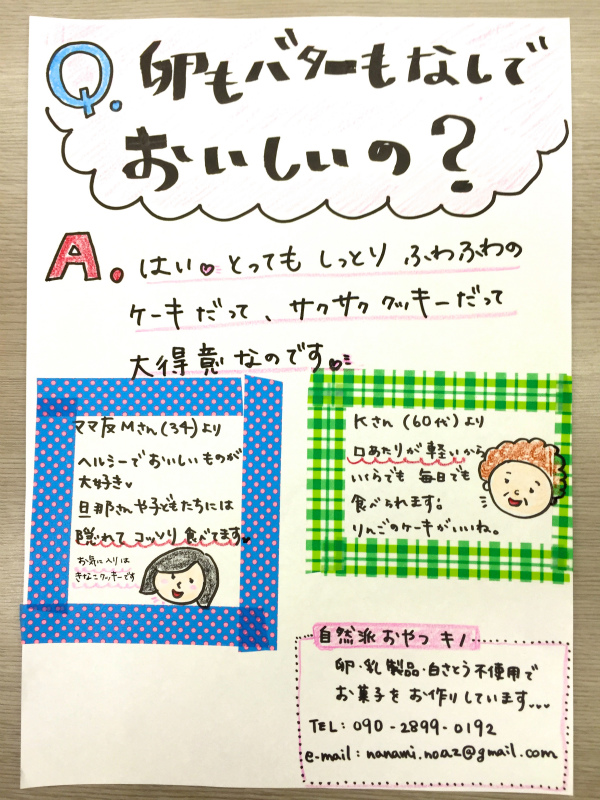 Q. 卵もバターもなしで
おいしいの？
A. はい♡とっても しっとり ふわふわの
ケーキだって、サクサク クッキーだって
大得意なのです♡
ママ友Mさん(34)より
ヘルシーでおいしいものが
大好き♥
旦那さんや子どもたちには
隠れて コッソリ 食べてます♥
お気に入りは
きなこクッキーです
Kさん(60代)より
口あたりが軽いから
いくらでも 毎日でも
食べられます。
りんごのケーキがいいね。
自然派おやつ キノ
卵・乳製品・白さとう不使用で
お菓子をお作りしています...
TEL: 090-2899-0192
e-mail: nanami.noaz@gmail.com